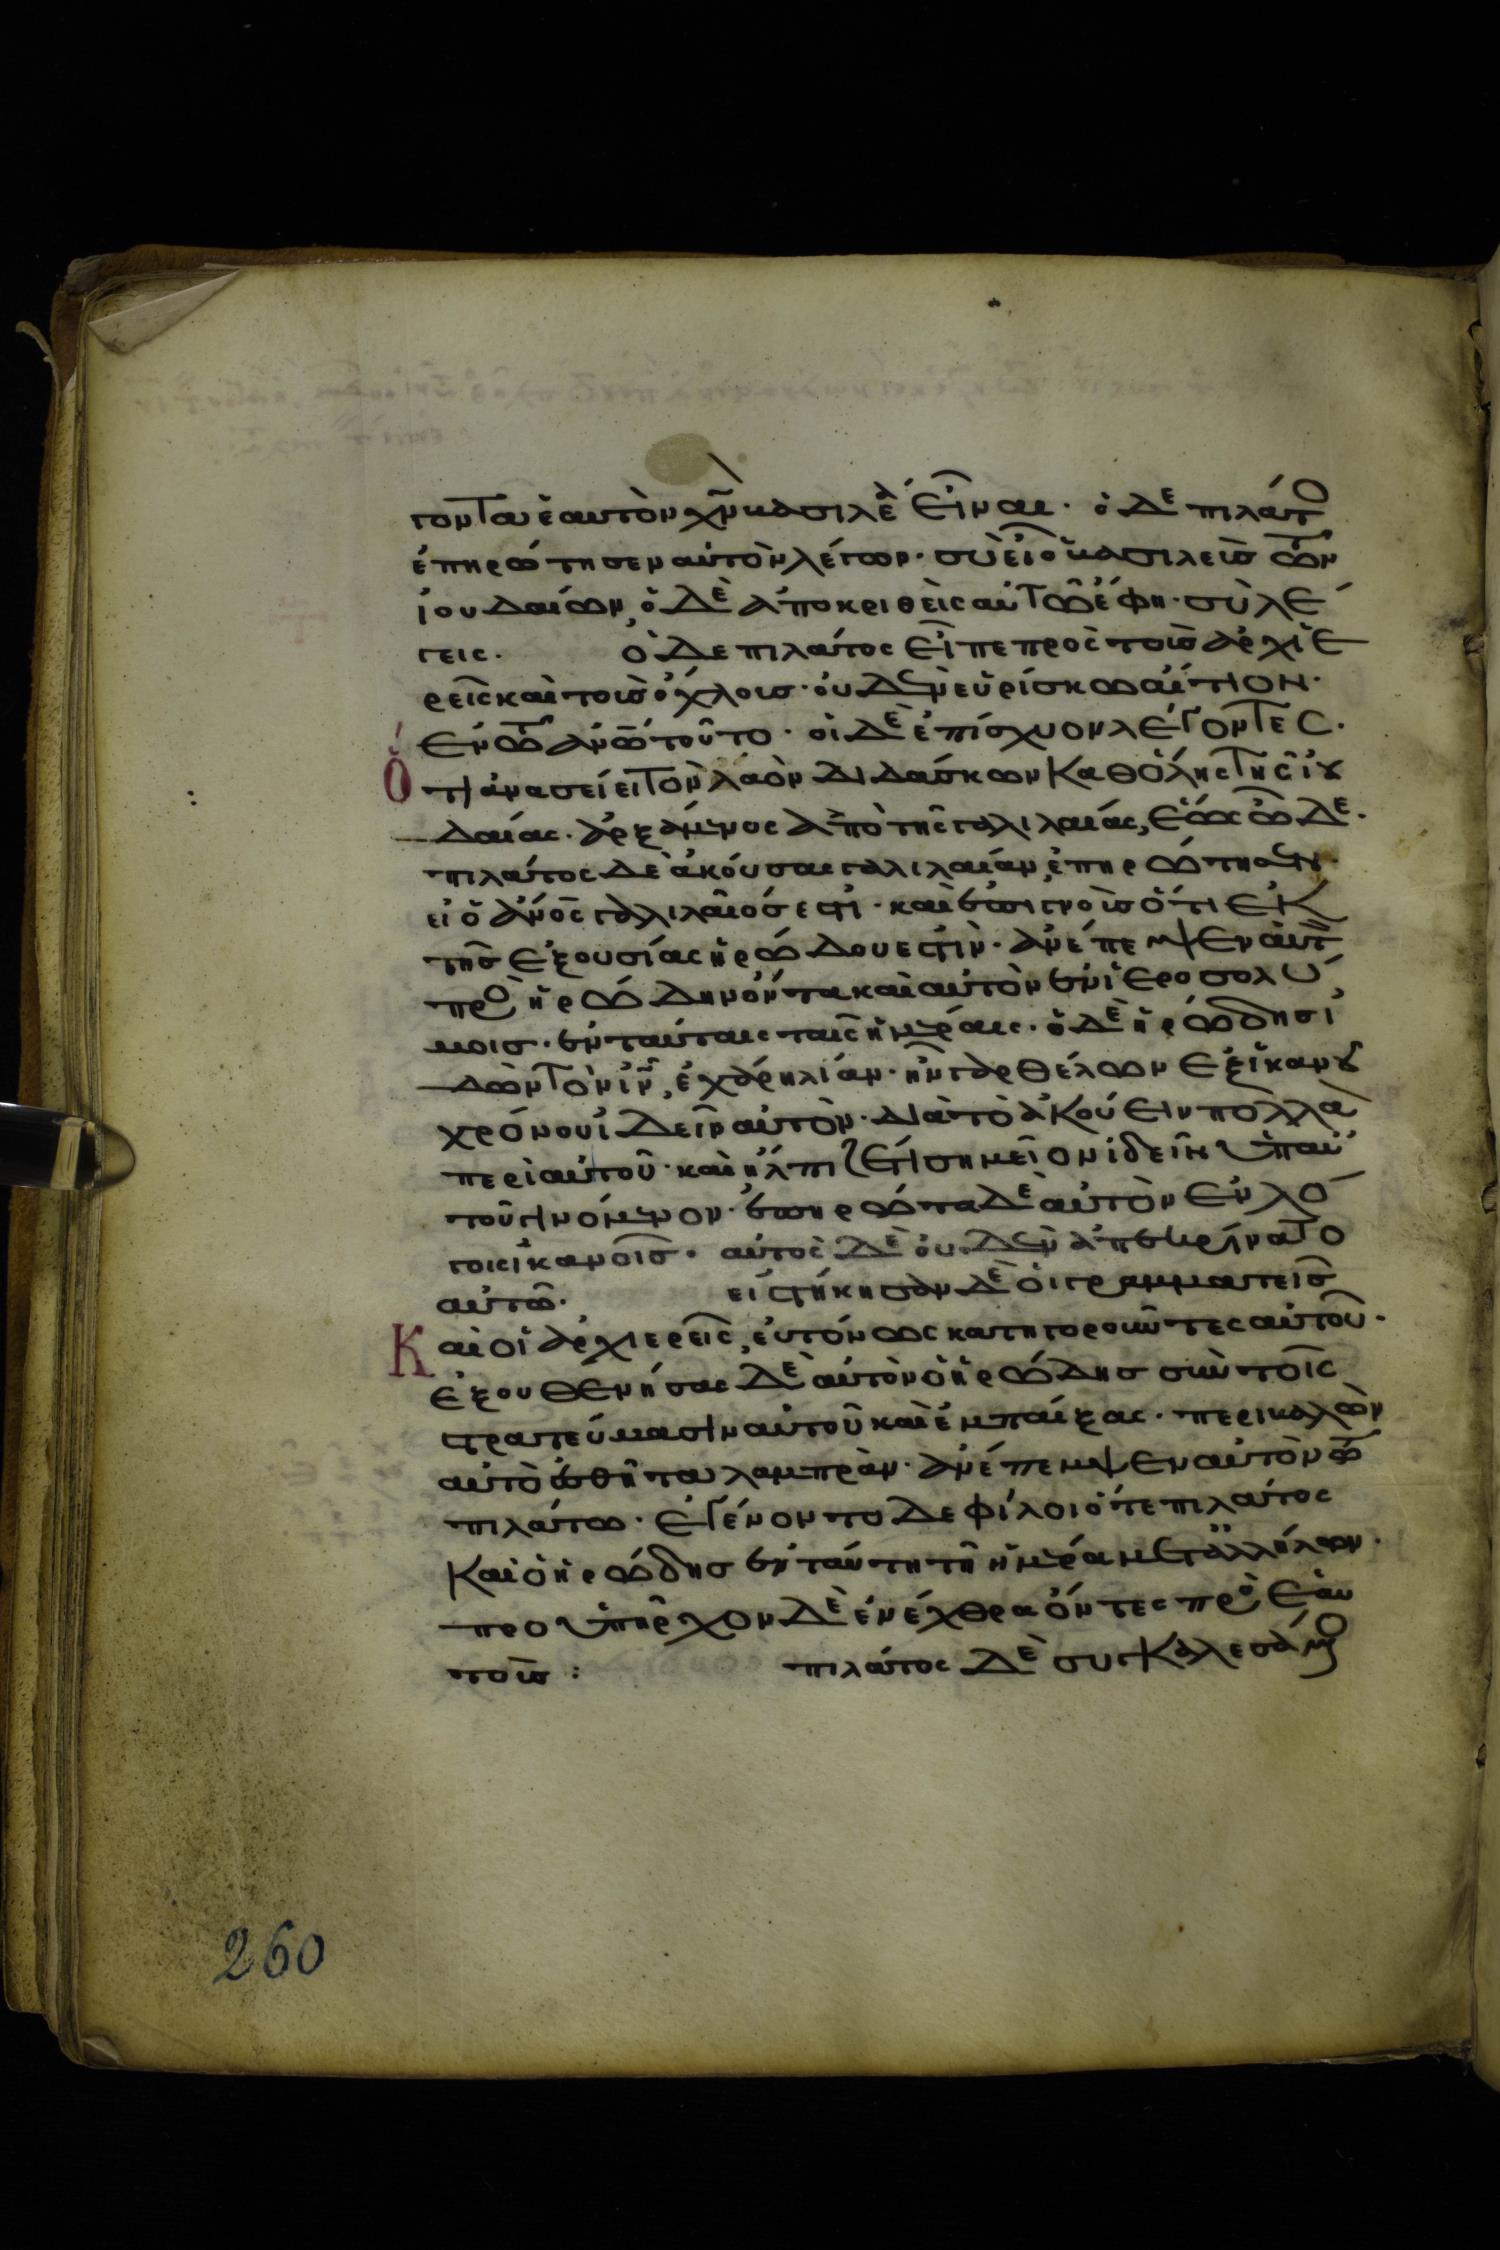 γοντα ἑαυτὸν χν̄ βασιλέα εἶναι· ὁ δὲ πιλάτος
ἐπηρώτησεν αὐτὸν λέγων· σὺ εἶ ὁ βασιλεὺς τῶν
ἰουδαίων, ὁ δὲ ἀποκριθεὶς αὐτῶ ἔφη· σὺ λέ
γεις. ὁ δε πιλάτος εἶπε προς τοὺς ἀρχιε
ρεῖς καὶ τοὺς ὄχλους· οὐδὲν εὑρίσκω αἴτιον·
ἐν τῶ ἀνω̄ τούτο· οἱ δὲ ἐπίσχυον λέγοντες.
Ὅτι ἀνασείει τὸν λαὸν διδάσκων καθόλης τῆς ἰου
δαίας· ἀρξάμενος ἀπὸ τῆς γαλιλαίας, ἕως ὧδε.
πιλάτος δὲ ἀκούσας γαλιλαίαν, ἐπηρώτησεν·
εἰ ὁ ἀνο̄ς γαλιλαῖος ἐστι· καὶ ἐπιγνοὺς ὅτι ἐκ
τῆς ἐξουσίας ἡρώδου ἐστὶν· ἀνέπεμψεν αὐτ
προς ἡρώδην ὄντα καὶ αὐτὸν ἐν ἱεροσολύ
μοις· ἐν ταύταις ταῖς ἡμέραις· ὁ δὲ ἡρώδης ἰ
δὼν τὸν ἰν̄, ἐχάρη λίαν· ἦν γὰρ θέλων ἐξ ἱκανοῦ
χρόνου ἰδεῖν αὐτὸν· διὰ τὸ ἀκούειν πολλὰ
περὶ αὐτοῦ· καὶ ἤλπιζέ τι σημεῖον ἰδεῖν ὑπ αὐ
τοῦ γινόμενον· ἐπηρώτα δὲ αὐτὸν ἐν λό
γοις ἱκανοῖς· αὐτος δὲ οὐδὲν ἀπεκρίνατο
αὐτῶ. εἱστήκησαν δὲ οἱ γραμματεῖς
Καὶ οἱ ἀρχιερεῖς, εὐτόνως κατηγοροῦντες αὐτοῦ·
ἐξουθενήσας δὲ αὐτὸν ὁ ἡρώδης σὺν τοῖς
στρατεύμασιν αὐτοῦ καὶ ἐμπαίξας· περιβαλὼν
αὐτὸ ἐσθῆτα λαμπρὰν· ἀνέπεμψεν αὐτὸν τῶ
πιλάτω· ἐγένοντο δε φίλοι ὅτε πιλάτος
Καὶ ὁ ἡρώδης ἐν ταύτη τῆ ἡμέρα μετ ἀλλήλων·
προϋπῆρχον δὲ ἐν ἔχθρα ὄντες προς ἑαυ
τούς: πιλάτος δὲ συγκαλεσάμενος
260